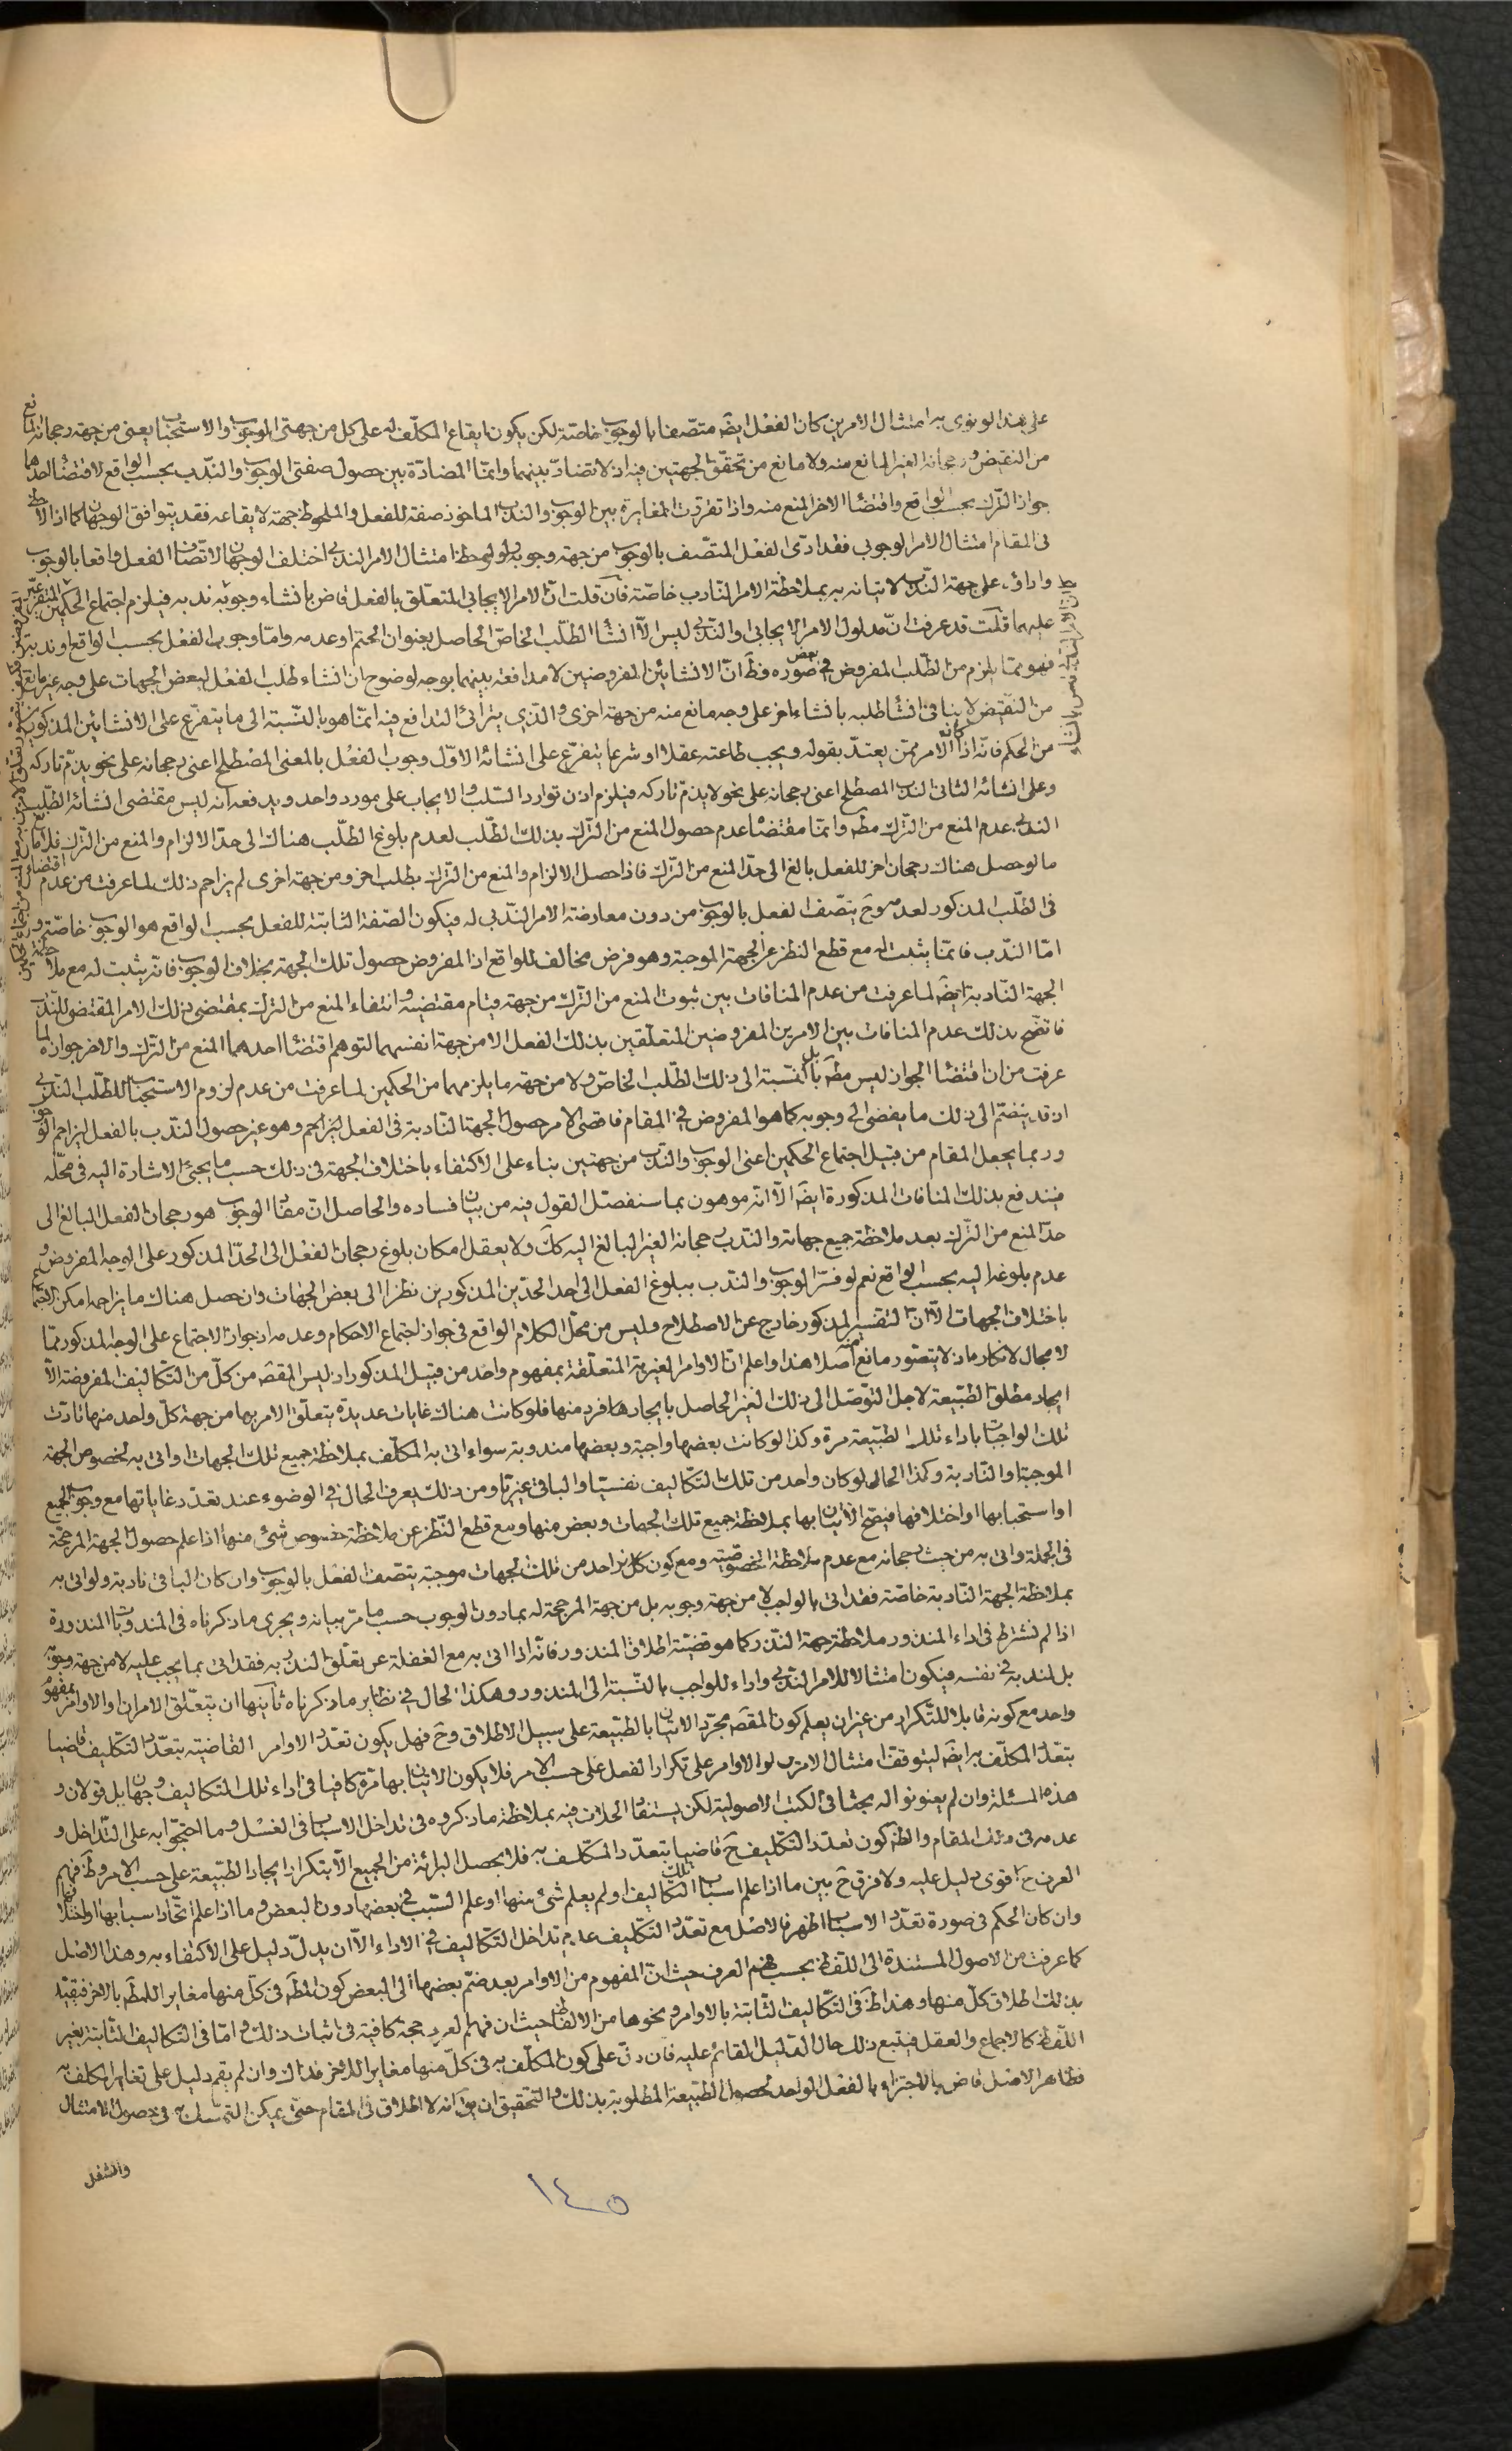 على هذا لو نوى به امتثال الامرين كان الفعل ايضه متصفا بالوجوب خاصة لكن يكون ايقاع المكلف له على كل من جهتى الوجوب والاستحباب يعنى من جهة رجحانه المانع
من النقيض ورجحانه الغير المانع منه ولا مانع من تحقق الجهتين فيه اذ لا تضاد بينهما وانما المضادة بين حصول صفتى الوجوب والندب بحسب الواقع لاقتضاء احدهما
جواز الترك بحسب الواقع واقتضاء الاخر المنع منه واذا تقررت المغايرة بين الوجوب والندب الماخوذ صفة للفعل والملحوظ جهة لايقاعه فقد يتوافق الوجهان كما اذا لاحظ
فى المقام امتثال الامر الوجوبى فقد ادى الفعل المتصف بالوجوب من جهة وجوبه ولو لوحظ امتثال الامر الندبى اختلف الوجهان لاتصاف الفعل واقعا بالوجوب
واداؤه على جهة الندب لاتيانه به بملاحظة الامر النادب خاصة فان قلت ان الامر الايجابى المتعلق بالفعل قاض بانشاء وجوبه ندبه فيلزم اجتماع الحكمين
عليه بما قلت قد عرفت ان مدلول الامر الايجابى والندبى ليس الا انشاء الطلب الخاص الحاصل بعنوان الحتم او عدمه واما وجوب الفعل بحسب الواقع او ندبه
فهو مما يلزم من الطلب المفروض فى بعض صوره فظ ان الانشائين المفروضين لا مدافعة بينهما بوجه لوضوح ان انشاء طلب الفعل لبعض الجهات على وجه غير مانع
من النقيض لا ينافى انشاء طلبه بانشاء اخر على وجه مانع منه من جهة اخرى والذى يترائى التدافع فيه انما هو بالنسبة الى ما يتفرع على الانشائين المذكورين
من الحكم فانه اذا كان الامر ممن يعتد بقوله ويجب طاعته عقلا او شرعا يتفرع على انشائه الاول وجوب الفعل بالمعنى المصطلح اعنى رجحانه على نحو يذم تاركه
وعلى انشائه الثانى الندب المصطلح اعنى رجحانه على نحو لا يذم تاركه فيلزم اذن توارد السلب والايجاب على مورد واحد ويدفعه انه ليس مقتضى انشائه الطلب
الندبى عدم المنع من الترك مطه وانما مقتضاه عدم حصول المنع من الترك بذلك الطلب لعدم بلوغ الطلب هناك الى حد الالزام والمنع من الترك
ما لو حصل هناك رجحان اخر للفعل بالغ الى حد المنع من الترك فاذا حصل الالزام والمنع من الترك بطلب اخر ومن جهة اخرى لم يزاحم ذلك لما عرفت من عدم اقتضاء
فى الطلب المذكور لعدمه وح يتصف الفعل بالوجوب من دون معارضة الامر الندبى له فيكون الصفة الثابتة للفعل بحسب الواقع هو الوجوب خاصة
اما الندب فانما يثبت له مع قطع النظر عن الجهة الموجبة وهو فرض مخالف للواقع اذ المفروض حصول تلك الجهة بخلاف الوجوب فانه يثبت له مع ملاحظة
الجهة النادبة ايضه لما عرفت من عدم المنافات بين ثبوت المنع من الترك من جهة قيام مقتضيه وانتفاء المنع من الترك بمقتضى ذلك الامر المقتضى للندب
فاتضح بذلك عدم المنافات بين الامرين المفروضين المتعلقين بذلك الفعل لا من جهة انفسهما لتوهم اقتضاء احدهما المنع من الترك والاخر جوازه لما
عرفت من ان اقتضاء الجواز ليس مطه بل بالنسبة الى ذلك الطلب الخاص ولا من جهة ما يلزمهما من الحكمين لما عرفت من عدم لزوم الاستحباب للطلب الندبى
اذ قد ينضم الى ذلك ما يفضى الى وجوبه كما هو المفروض فى المقام فاقصى الامر حصول الجهة النادبة فى الفعل وهو غير حصول الندب بالفعل ليزاحم الوجوب
وربما يجعل المقام من قبيل اجتماع الحكمين اعنى الوجوب والندب من جهتين بناء على الاكتفاء باختلاف الجهة فى ذلك حسب ما يجئ الاشارة اليه فى محله
فيندفع بذلك المنافات المذكورة ايضه الا انه موهون بما سنفصل القول فيه من بيان فساده والحاصل ان مفاد الوجوب هو رجحان الفعل البالغ الى
حد المنع من الترك بعد ملاحظة جميع جهاته والندب رجحانه الغير البالغ اليه كك ولا يعقل امكان بلوغ رجحان الفعل الى الحد المذكور على الوجه المفروض و
عدم بلوغه اليه بحسب الواقع نعم لو فسر الوجوب والندب ببلوغ الفعل الى احد الحدين المذكورين نظرا الى بعض الجهات وان حصل هناك ما يزاحمه امكن اجتماعهما
باختلاف الجهات الا ان التفسير المذكور خارج عن الاصطلاح وليس من محل الكلام الواقع فى جواز اجتماع الاحكام وعدمه اذ جواز الاجتماع على الوجه المذكور مما
لا مجال لانكاره اذ لا يتصور مانع منه اصلا هذا واعلم ان الاوامر الغيرية المتعلقة بمفهوم واحد من قبيل المذكور اذ ليس المقصه من كل من التكاليف المفروضة الا
ايجاد مطلق الطبيعة لاجل التوصل الى ذلك الغير الحاصل بايجاد فرد منها فلو كانت هناك غايات عديدة يتعلق الامر بها من جهة كل واحد منها تادت
تلك الواجبات باداء تلك الطبيعة مرة وكذا لو كانت بعضها واجبة وبعضها مندوبة سواء اتى به المكلف بملاحظة جميع تلك الجهات او اتى به لخصوص الجهة
الموجبة او النادبة وكذا الحال لو كان واحد من تلك التكاليف نفسيا والباقى غيريا ومن ذلك يعرف الحال فى الوضوء عند تعدد غاياتها مع وجوب الجميع
او استحبابها او اختلافها فيصح الاتيان بها بملاحظة جميع تلك الجهات وبعض منها ومع قطع النظر عن ملاحظة خصوص شئ منها اذا علم حصول الجهة المرجحة
فى الجملة واتى به من حيث رجحانه مع عدم ملاحظة الخصوصية ومع كون كل واحد من تلك الجهات موجبة يتصف الفعل بالوجوب وان كان الباقى نادبة ولو اتى به
بملاحظة الجهة النادبة خاصة فقد اتى بالواجب لا من جهة وجوبه بل من جهة المرجحة له بما دون الوجوب حسب ما مر بيانه ويجرى ما ذكرناه فى المندوبات المنذورة
اذا لم نشترط فى اداء المنذور ملاحظة جهة النذر كما هو قضية اطلاق المنذور فانه اذا اتى به مع الغفلة عن تعلق النذر به فقد اتى بما يجب عليه لا من جهة وجوبه
بل لندبه فى نفسه فيكون امتثالا للامر الندبى واداء للواجب بالنسبة الى المنذور وهكذا الحال فى نظاير ما ذكرناه ثانيها ان يتعلق الامران او الاوامر بمفهوم
واحد مع كونه قابلا للتكرار من غير ان يعلم كون المقصه مجرد الاتيان بالطبيعة على سبيل الاطلاق وح فهل يكون تعدد الاوامر القاضية بتعدد التكليف قاضيا
بتعدد المكلف به ايضه ليتوقف امتثال الامرين او الاوامر على تكرار الفعل على حسب الامر فلا يكون الاتيان بها مرة كافيا فى اداء تلك التكاليف وجهان بل قولان و
هذه المسئلة وان لم يعنونوا له بحثا فى الكتب الاصولية لكن يستفاد الخلاف فيه بملاحظة ما ذكروه فى تداخل الاسباب فى الغسل وما احتجوا به على التداخل و
عدمه فى ذلك المقام والظه كون تعدد التكليف ح قاضيا بتعدد المكلف به فلا يحصل البرائة من الجميع الا بتكرار ايجاد الطبيعة على حسب الامر وظ فهم
العرف ح اقوى دليل عليه ولا فرق ح بين ما اذا علم اسباب تلك التكاليف او لم يعلم شئ منها او علم السبب فى بعضها دون البعض وما اذا علم اتحاد اسبابها او اختلافها
وان كان الحكم فى صورة تعدد الاسباب اظهر فالاصل مع تعدد التكليف عدم تداخل التكاليف فى الاداء الا ان يدل دليل على الاكتفاء به وهذا الاصل
كما عرفت من الاصول المستندة الى اللفظ بحسب فهم العرف حيث ان المفهوم من الاوامر بعد ضم بعضها الى البعض كون المطه فى كل منها مغايرا للمطه بالاخر فيقيد
بذلك اطلاق كل منها وهذا ظ فى التكاليف الثابتة بالاوامر ونحوها من الالفاظ حيث ان فهم العرف حجة كافية فى اثبات ذلك واما فى التكاليف الثابتة بغير
اللفظ كالاجماع والعقل فيتبع ذلك حال الدليل القائم عليه فان دل على كون المكلف به فى كل منها مغايرا للاخر فذاك وان لم يقم دليل على تغاير المكلف به
فظاهر الاصل قاض بالاجتزاء بالفعل الواحد لحصول الطبيعة المطلوبة بذلك والتحقيق ان يق انه لا اطلاق فى المقام حتى يمكن التمسك به فى حصول الامتثال
والشغل
١٤٥